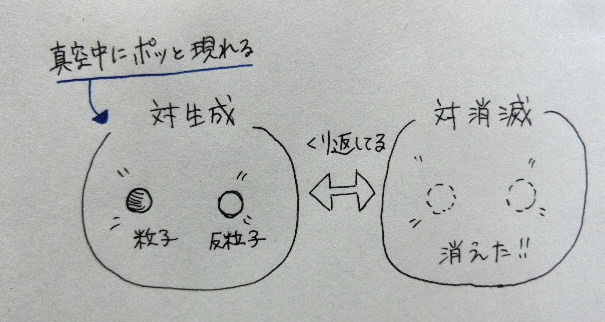 真空中にポッと現れる
対生成
粒子
反粒子
くり返してる
対消滅
消えた!!